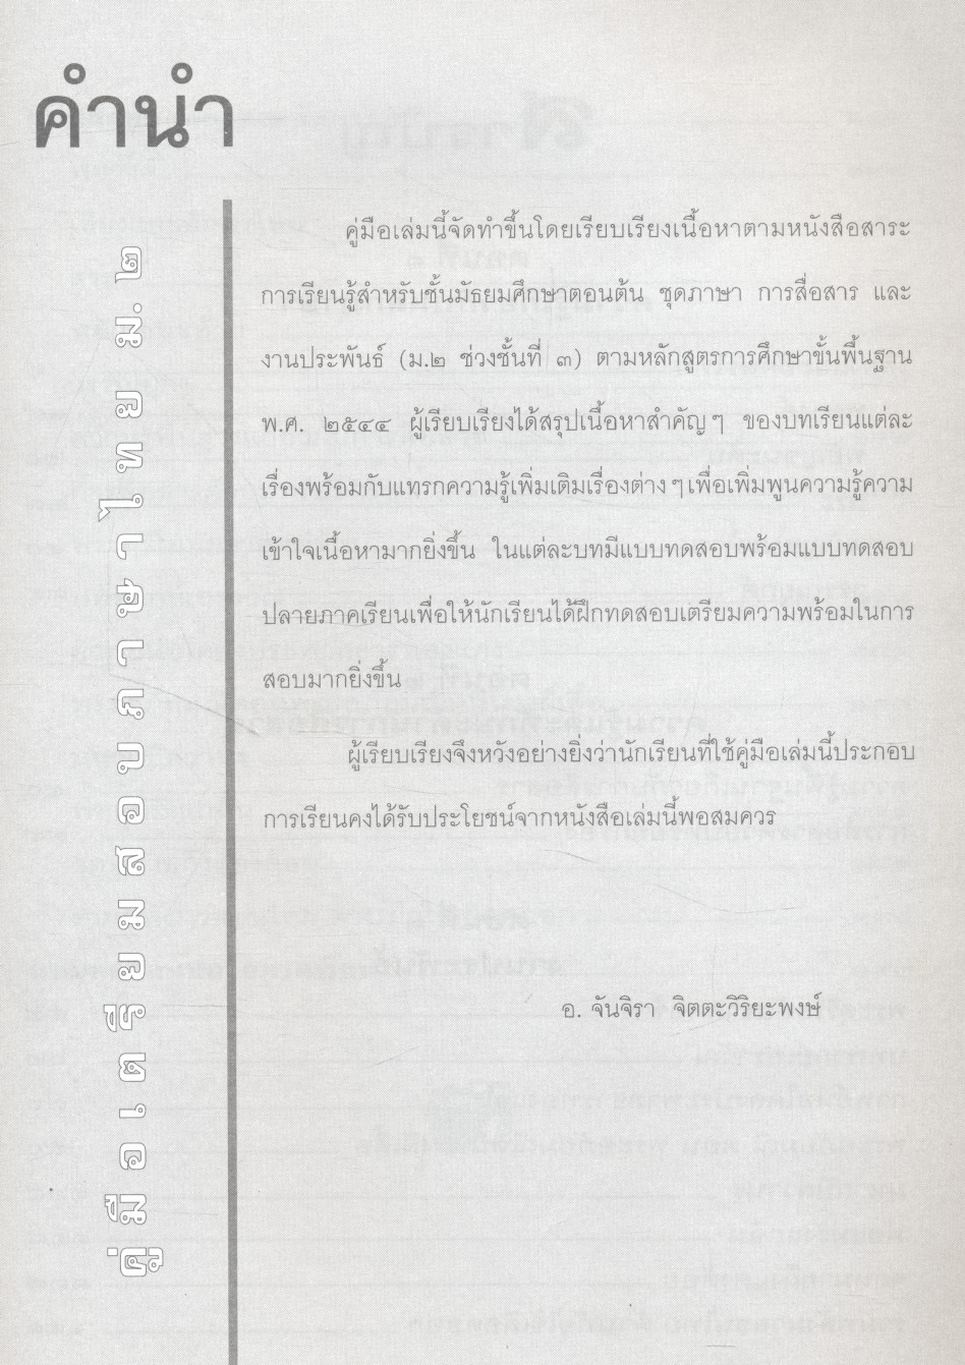 คำนำ
คู่มือเตรียมสอบภาษาไทย ม. ๒
คู่มือเล่มนี้จัดทำขึ้นโดยเรียบเรียงเนื้อหาตามหนังสือสาระ
การเรียนรู้สำหรับชั้นมัธยมศึกษาตอนต้น ชุดภาษา การสื่อสาร และ
งานประพันธ์ (ม.๒ ช่วงชั้นที่ ๓) ตามหลักสูตรการศึกษาขั้นพื้นฐาน
พ.ศ. ๒๕๔๔ ผู้เรียบเรียงได้สรุปเนื้อหาสำคัญๆ ของบทเรียนแต่ละ
เรื่องพร้อมกับแทรกความรู้เพิ่มเติมเรื่องต่างๆเพื่อเพิ่มพูนความรู้ความ
เข้าใจเนื้อหามากยิ่งขึ้น ในแต่ละบทมีแบบทดสอบพร้อมแบบทดสอบ
ปลายภาคเรียนเพื่อให้นักเรียนได้ฝึกทดสอบเตรียมความพร้อมในการ
สอบมากยิ่งขึ้น
ผู้เรียบเรียงจึงหวังอย่างยิ่งว่านักเรียนที่ใช้คู่มือเล่มนี้ประกอบ
การเรียนคงได้รับประโยชน์จากหนังสือเล่มนี้พอสมควร
อ. จันจิรา จิตตะวิริยะพงษ์